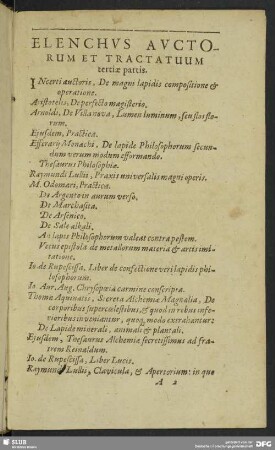 ELENCHVS AVCTO-
RVM ET TRACTATUUM
tertiæ partis.
INcerti auctoris, De magni lapidis compositione &
operatione.
Aristotelis, De perfecto magisterio.
Arnoldi, De Villanova, Lumen luminum, seu flos flo-
rum.
Ejusdem, Practica.
Efferarij Monachi, De lapide Philosophorum secun-
dum verum modum efformando.
Thesaurus Philosophiæ.
Raymundi Lullii, Praxis universalis magni operis.
M. Odomari, Practica.
De Argento in aurum verso.
De Marchasita.
De Arsenico.
De Sale alkali.
An lapis Philosophorum valeat contra pestem.
Vetus epistola de metallorum materia & artis imi-
tatione.
Io. de Rupescissa, Liber de confectione veri lapidis phi-
losophorum.
Io. Aur. Aug. Chrysopœia carmine conscripta.
Thomæ Aquinatis, Secreta Alchemiæ Magnalia, De
corporibus supercœlestibus, & quod in rebus infe-
rioribus inveniantur, quoq, modo extrahantur:
De Lapide minerali, animali & plantali.
Ejusdem, Thesaurus Alchemiæ secretissimus ad fra-
trem Reinaldum.
Io. de Rupescissa, Liber Lucis.
Raymundi Lullij, Clavicula, & Apertorium: in quo
A 2
SLUB